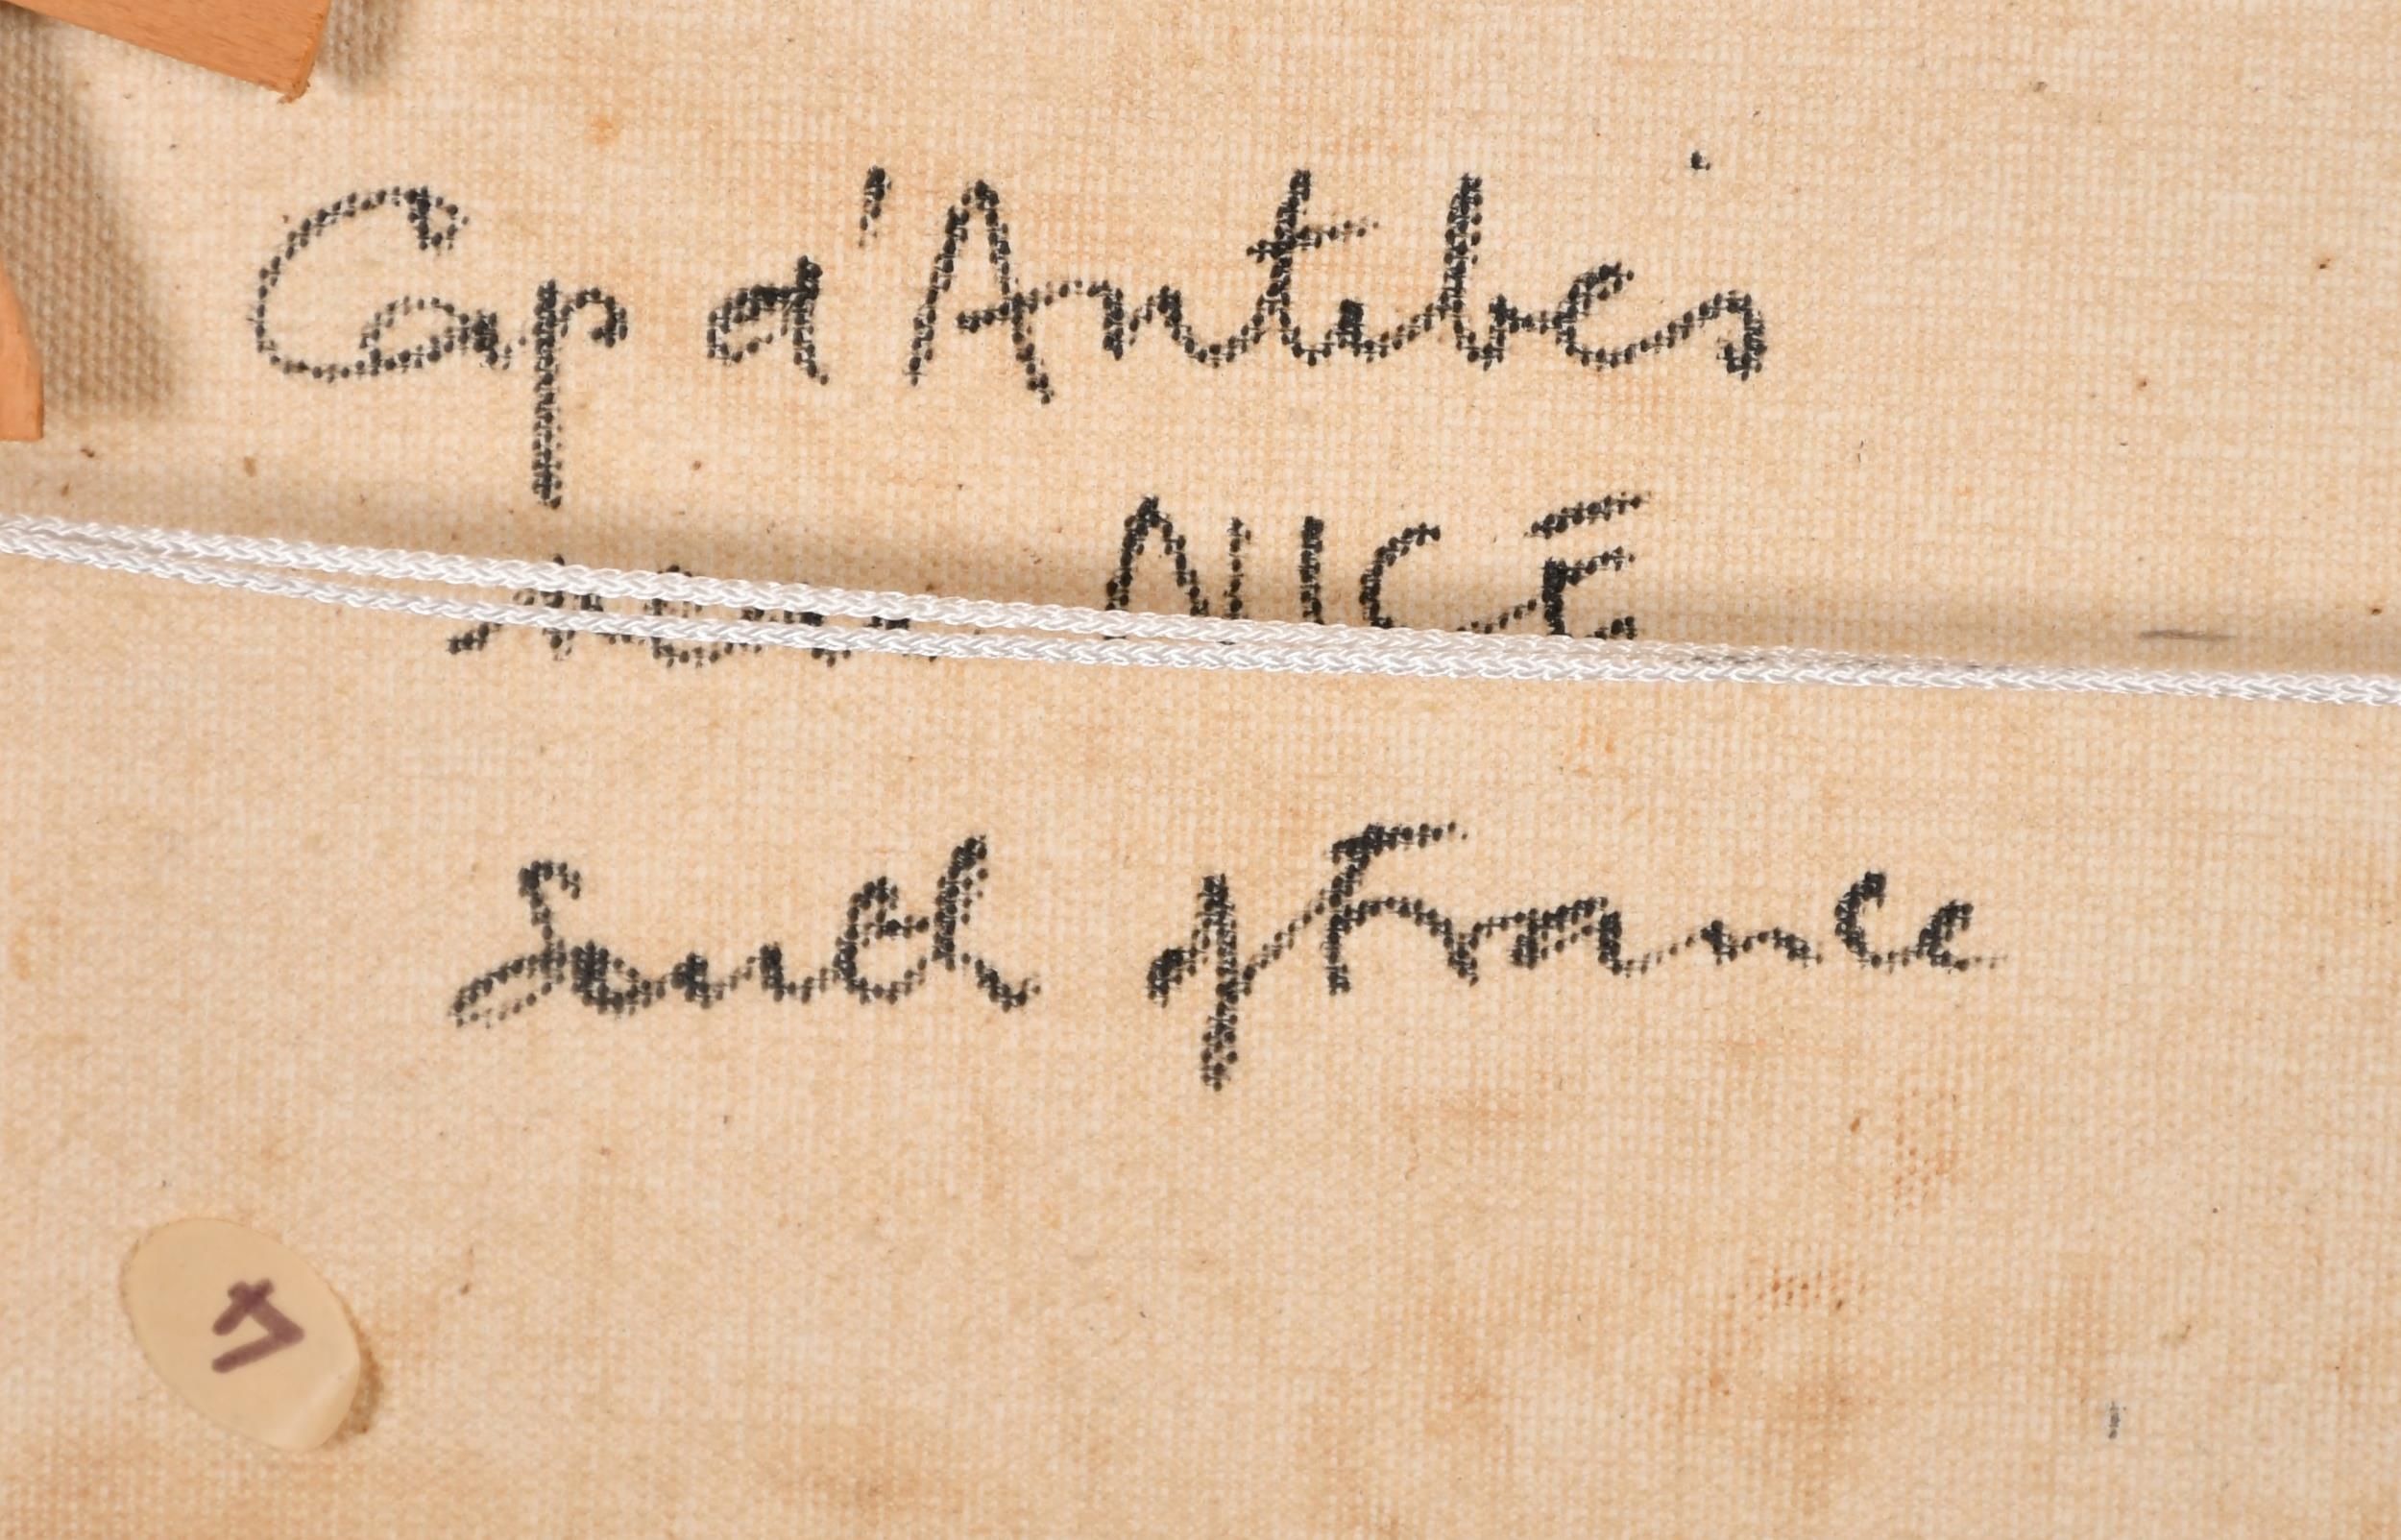 Cap d'Antibes
near NICE
South of France
4